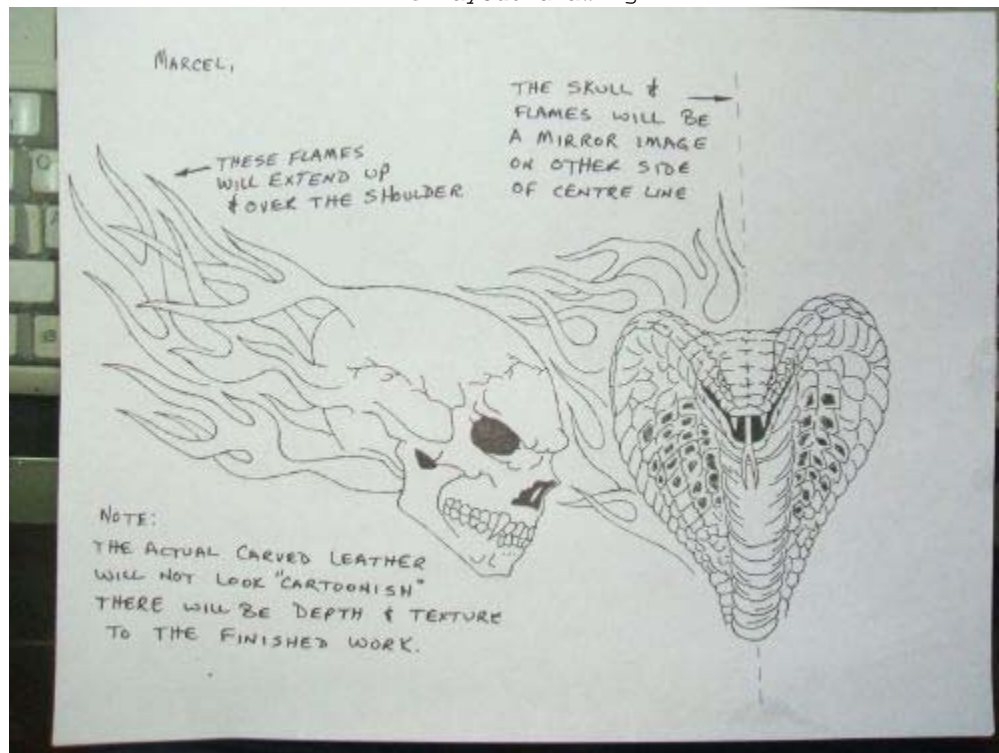 MARCEL,
THESE FLAMES
WILL EXTEND UP
& OVER THE SHOULDER
THE SKULL &
FLAMES WILL BE
A MIRROR IMAGE
ON OTHER SIDE
OF CENTRE LINE
NOTE:
THE ACTUAL CARVED LEATHER
WILL NOT LOOK "CARTOONISH"
THERE WILL BE DEPTH & TEXTURE
TO THE FINISHED WORK.